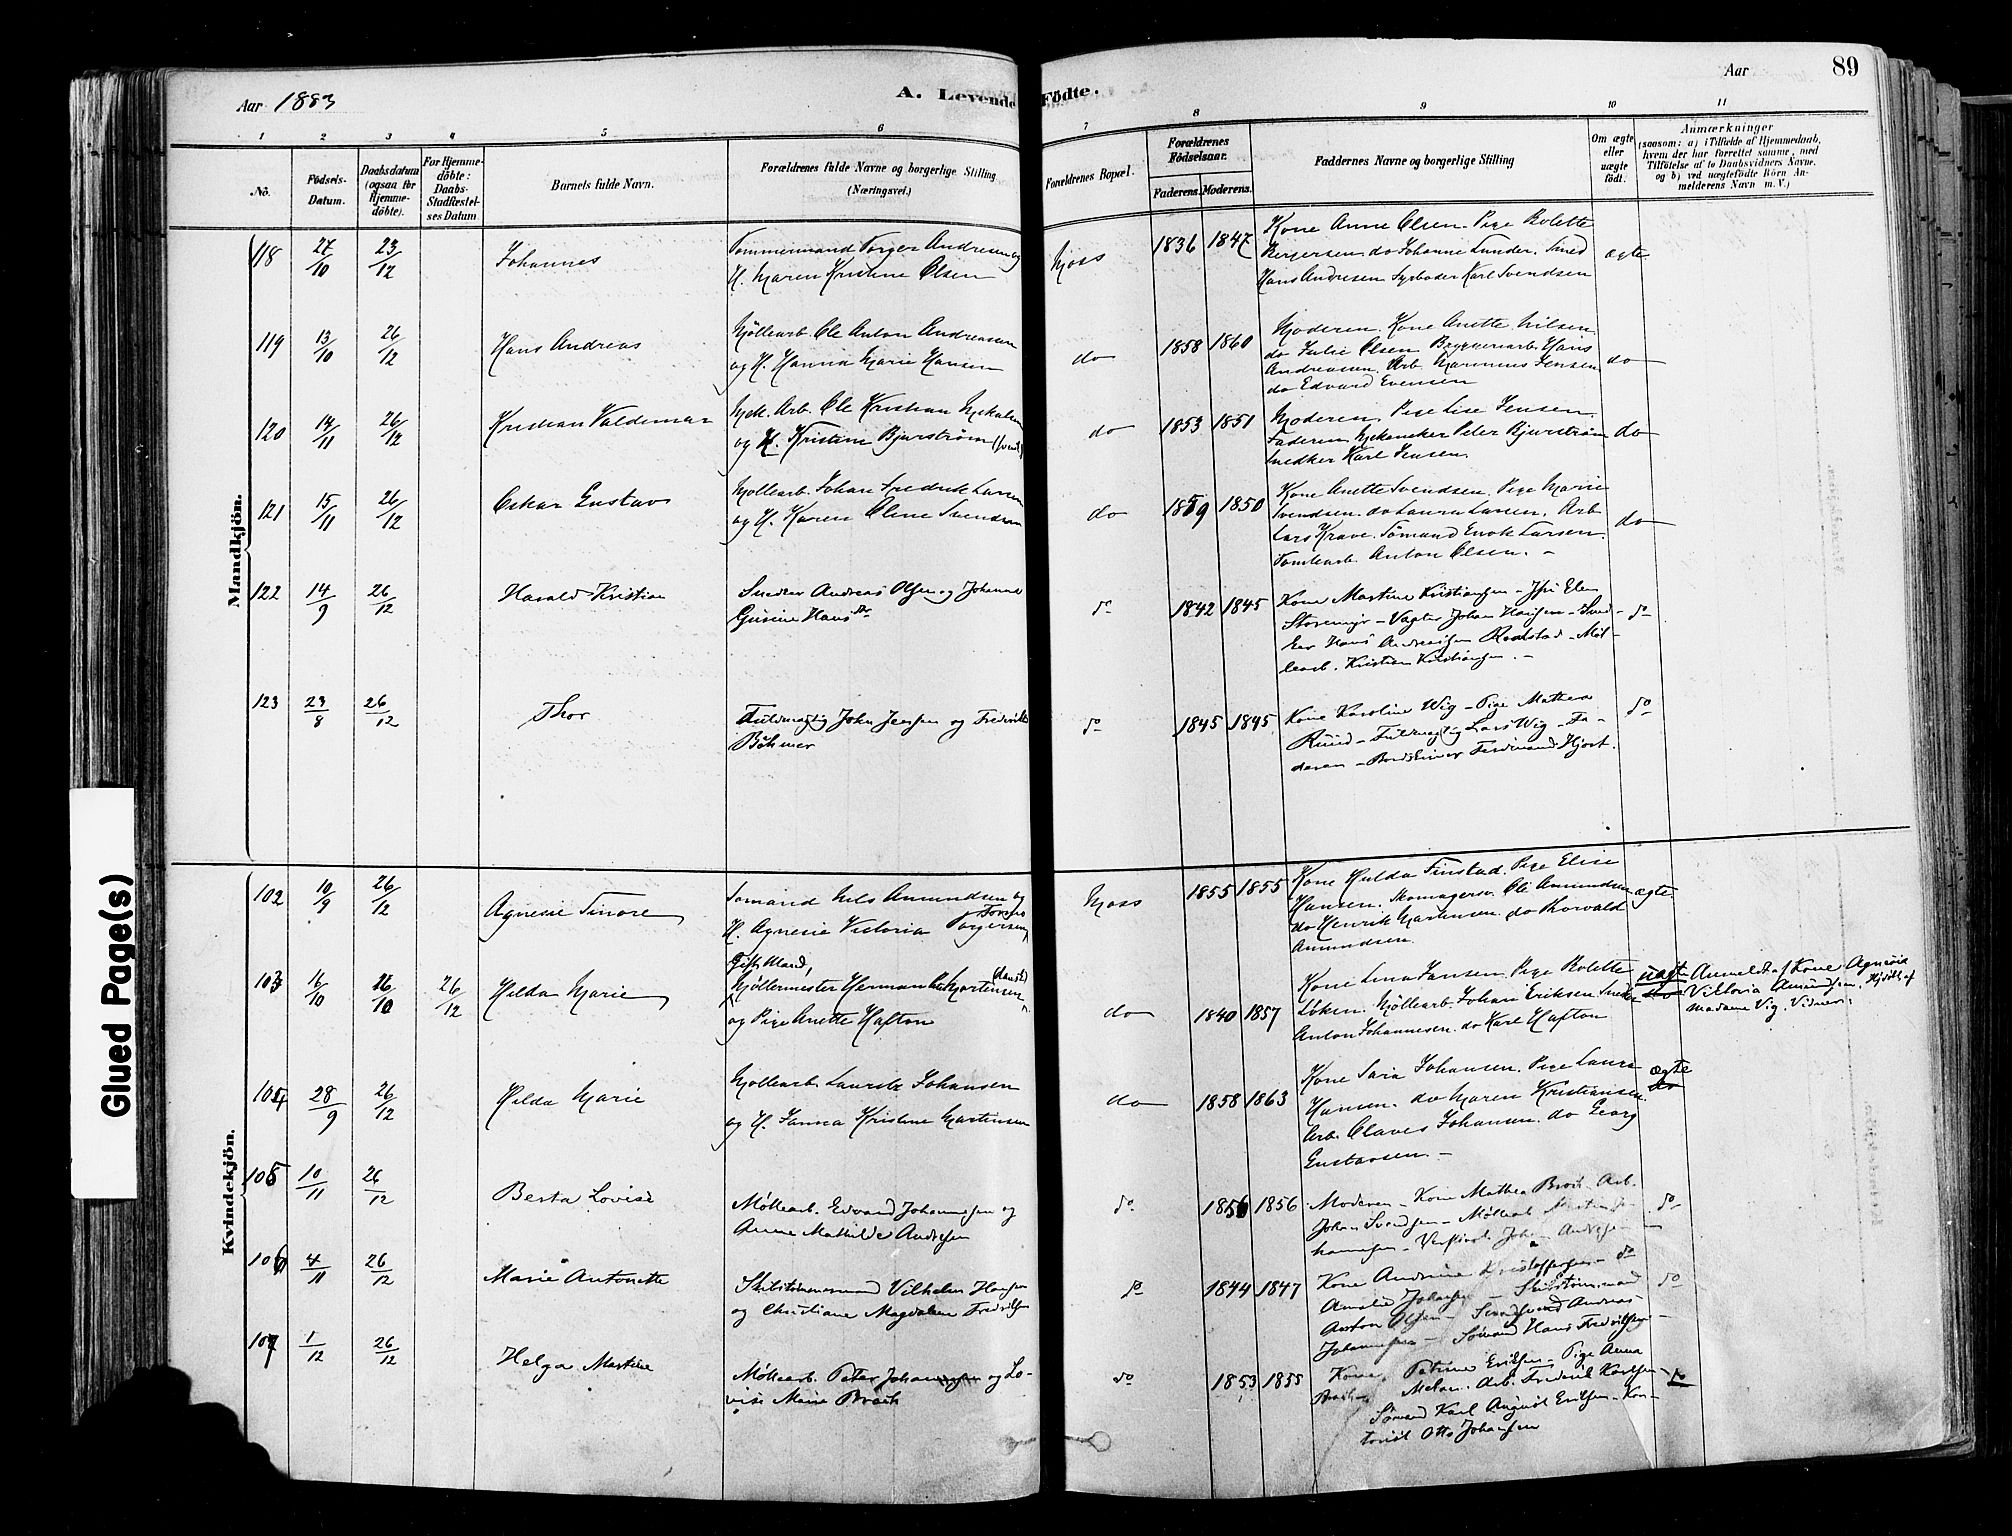 Aar 1883
A. Levende Födte.
Aar
89
1 2 3 4 5 6 7 8 9 10 11
No.
Födsels-Datum.
Daabsdatum (ogsaa for Hjemme-döbte).
For Hjemme-döbte: Daabs-Stadfæstel-ses Datum
Barnets fulde Navn.
Forældrenes fulde Navne og borgerlige Stilling (Næringsvei.)
Forældrenes Bopæl.
Forældrenes Födselsaar.
Faderens. Moderens.
Faddernes Navne og borgerlige Stilling
Om ægte eller uægte födt.
Anmærkninger
(saasom: a) i Tilfælde af Hjemmedaab,
hvem der har forrettet samme, med
Tilföielse af to Daabsvidners Navne,
og b) ved uægtefödte Börn An-
melderens Navn m. V.)
Mandkjön.
118 27/10 23/12 Johannes
Tömmermand Torger Andresen og
H. Maren Kristine Olsen
Moss 1836 1847
Kone Anne Olsen. Pige Bolette
Bergersen do Johanne Lunder. Smed
Hans Andresen Karl Svendsen
ægte
119 13/10 26/12 Hans Andreas
Møllearb. Ole Anton Andreasen
og H. Hanna Marie Hansen
do 1858 1860
Moderen. Kone Anette Nilsen.
do Julie Olsen Bryggeriarb. Hans
Andreasen. Arb. Marinius Jensen
do Edvard Evensen
do
120 14/11 26/12 Kristian Valdemar
Mek. Arb. Ole Kristian Mikalsen
og H. Kristine Bjurstrøm (svensk)
do 1853 1851
Moderen. Pige Lise Jensen.
Faderen, Mekaniker Peter Bjurstrøm
Snedker Karl Jensen.
do
121 15/11 26/12 Oskar Gustav
Møllearb. Johan Fredrik Larsen
og H. Karen Oline Svendsen
do 1859 1850
Kone Anette Svendsen. Pige Marie
Svendsen. do Laura Larsen. Arb
Lars Krave. Sömand Enok Larsen.
Tomtearb. Anton Olsen. -
do
122 14/9 26/12 Harald Kristian
Snedker Andreas Olsen og Johanne
Gusine Hansdr
do 1842 1845
Kone Martine Kristiansen - Elen
Storemyr - Vagter Johan Hansen - Sned-
ker Hans Andreassen Rodstad - Møl-
learb. Kristian Kristiansen. -
do
123 23/8 26/12 Thor
Fuldmægtig John Jenssen og Fredrikke
Böhmer
do 1845 1845
Kone Karoline Wig - Pige Mathea
Ruud - Fuldmægtig Lars Wig - Fa-
deren - Ferdinand Hjort.
do
Kvindekjön.
102 10/9 26/12 Agnesie Tinore
Sömand Nils Amundsen og
H. Agnesie Victoria Torgersen
Moss 1855 1855
Kone Hulda Finstad. Pige Elise
Hansen. Skomagersv. Oli Amundsen
do Henrik Mortensen. do Thorvald
Amundsen.
ægte.
103 16/10 16/10 26/12 Hilda Marie
Gift Mand,
Møllermester Herman Mortensen (dansk)
og Pige Anette Hafton
do 1840 1857
Kone Lina Jansen. Pige Bolette
Løken. Møllearb. Johan Eriksen. Snedker
Anton Johannesen. do Karl Hafton
uægte
Anmeldt af Kone Agnesia
Viktoria Amundsen. Hjdöbt af
Madame Vig. Vidner:
104 28/9 26/12 Hilda Marie
Møllearb. Lauritz Johansen
og H. Janna Kristine Martinsen
do 1858 1863
Kone Sara Johansen. Pige Laura
Hansen. do Maren Kristiansen.
Arb. Olaves Johansen. do Georg
Gustavsen. -
ægte
105 10/11 26/12 Berta Lovise
Møllearb. Edvard Johannesen og
Anne Mathilde Andresen
do 1856 1856
Moderen - Kone Mathea Broch - Arb.
Johan Svendsen - Møllearb.
do
106 4/11 26/12 Marie Antonette
Skibstömmermand Vilhelm Hansen
og Christiane Magdalene Fredriksen
do 1844 1847
Kone Andrine Kristoffersen - do
Amalie Johansen - Skibstömmermand
Anton Olsen - Andreas
Johannesen - Sömand Hans Fredriksen -
do
107 1/12 26/12 Helga Martine
Møllearb. Peter Johannesen og Lo-
vise Marie Broch
do 1853 1855
Kone Petrine Eriksen - Pige Anna
Broch - Arb. Fredrik Karlsen
Sömand Karl August Eriksen - Kon-
torist Otto Johansen
do
Glued Page(s)